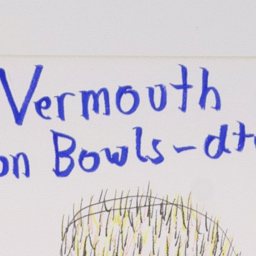 Vermouth
on Bowls-